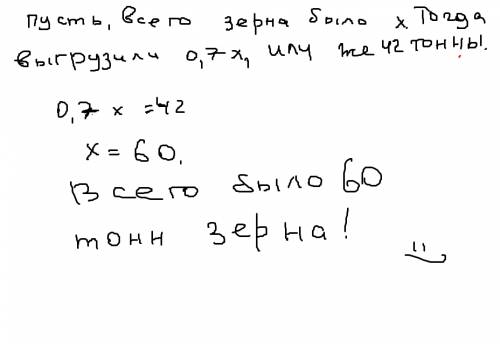 пусть, всего зерна было x Тогда
выгрузили 0,7x, или же 42 тонны.
0,7 x = 42
x = 60.
Всего было 60
тонн зерна!